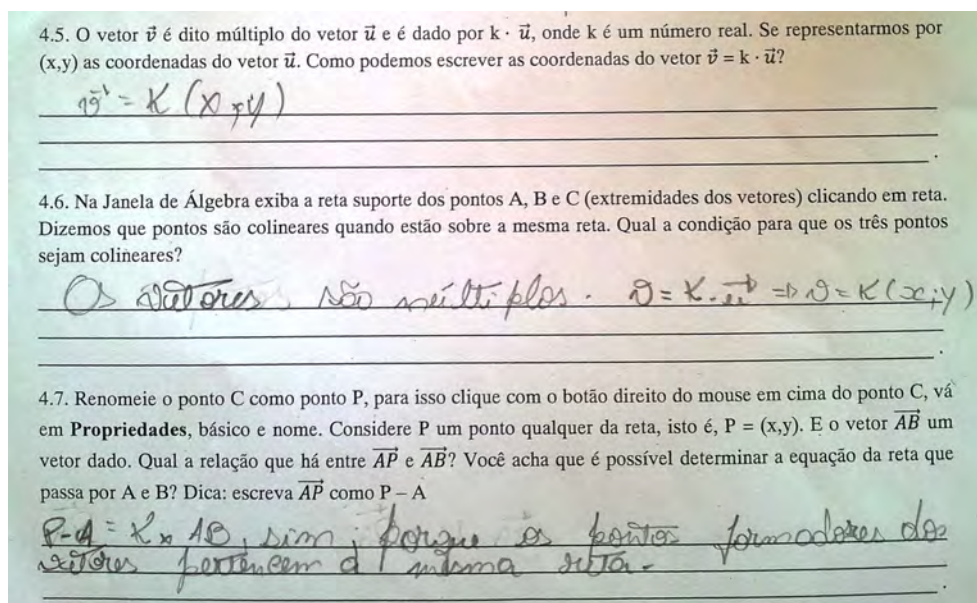 4.5. O vetor v⃗ é dito múltiplo do vetor u⃗ e é dado por k · u⃗, onde k é um número real. Se representarmos por
(x,y) as coordenadas do vetor u⃗. Como podemos escrever as coordenadas do vetor v⃗ = k · u⃗?
v⃗ = K (x ; y)
4.6. Na Janela de Álgebra exiba a reta suporte dos pontos A, B e C (extremidades dos vetores) clicando em reta.
Dizemos que pontos são colineares quando estão sobre a mesma reta. Qual a condição para que os três pontos
sejam colineares?
Os vetores são múltiplos. v = K. u⃗ => v = K(x;y)
4.7. Renomeie o ponto C como ponto P, para isso clique com o botão direito do mouse em cima do ponto C, vá
em Propriedades, básico e nome. Considere P um ponto qualquer da reta, isto é, P = (x,y). E o vetor A͞B⃗ um
vetor dado. Qual a relação que há entre AP⃗ e AB⃗? Você acha que é possível determinar a equação da reta que
passa por A e B? Dica: escreva AP⃗ como P – A
P-A = K x AB, sim, porque os pontos formadores dos
vetores pertencem a mesma reta.